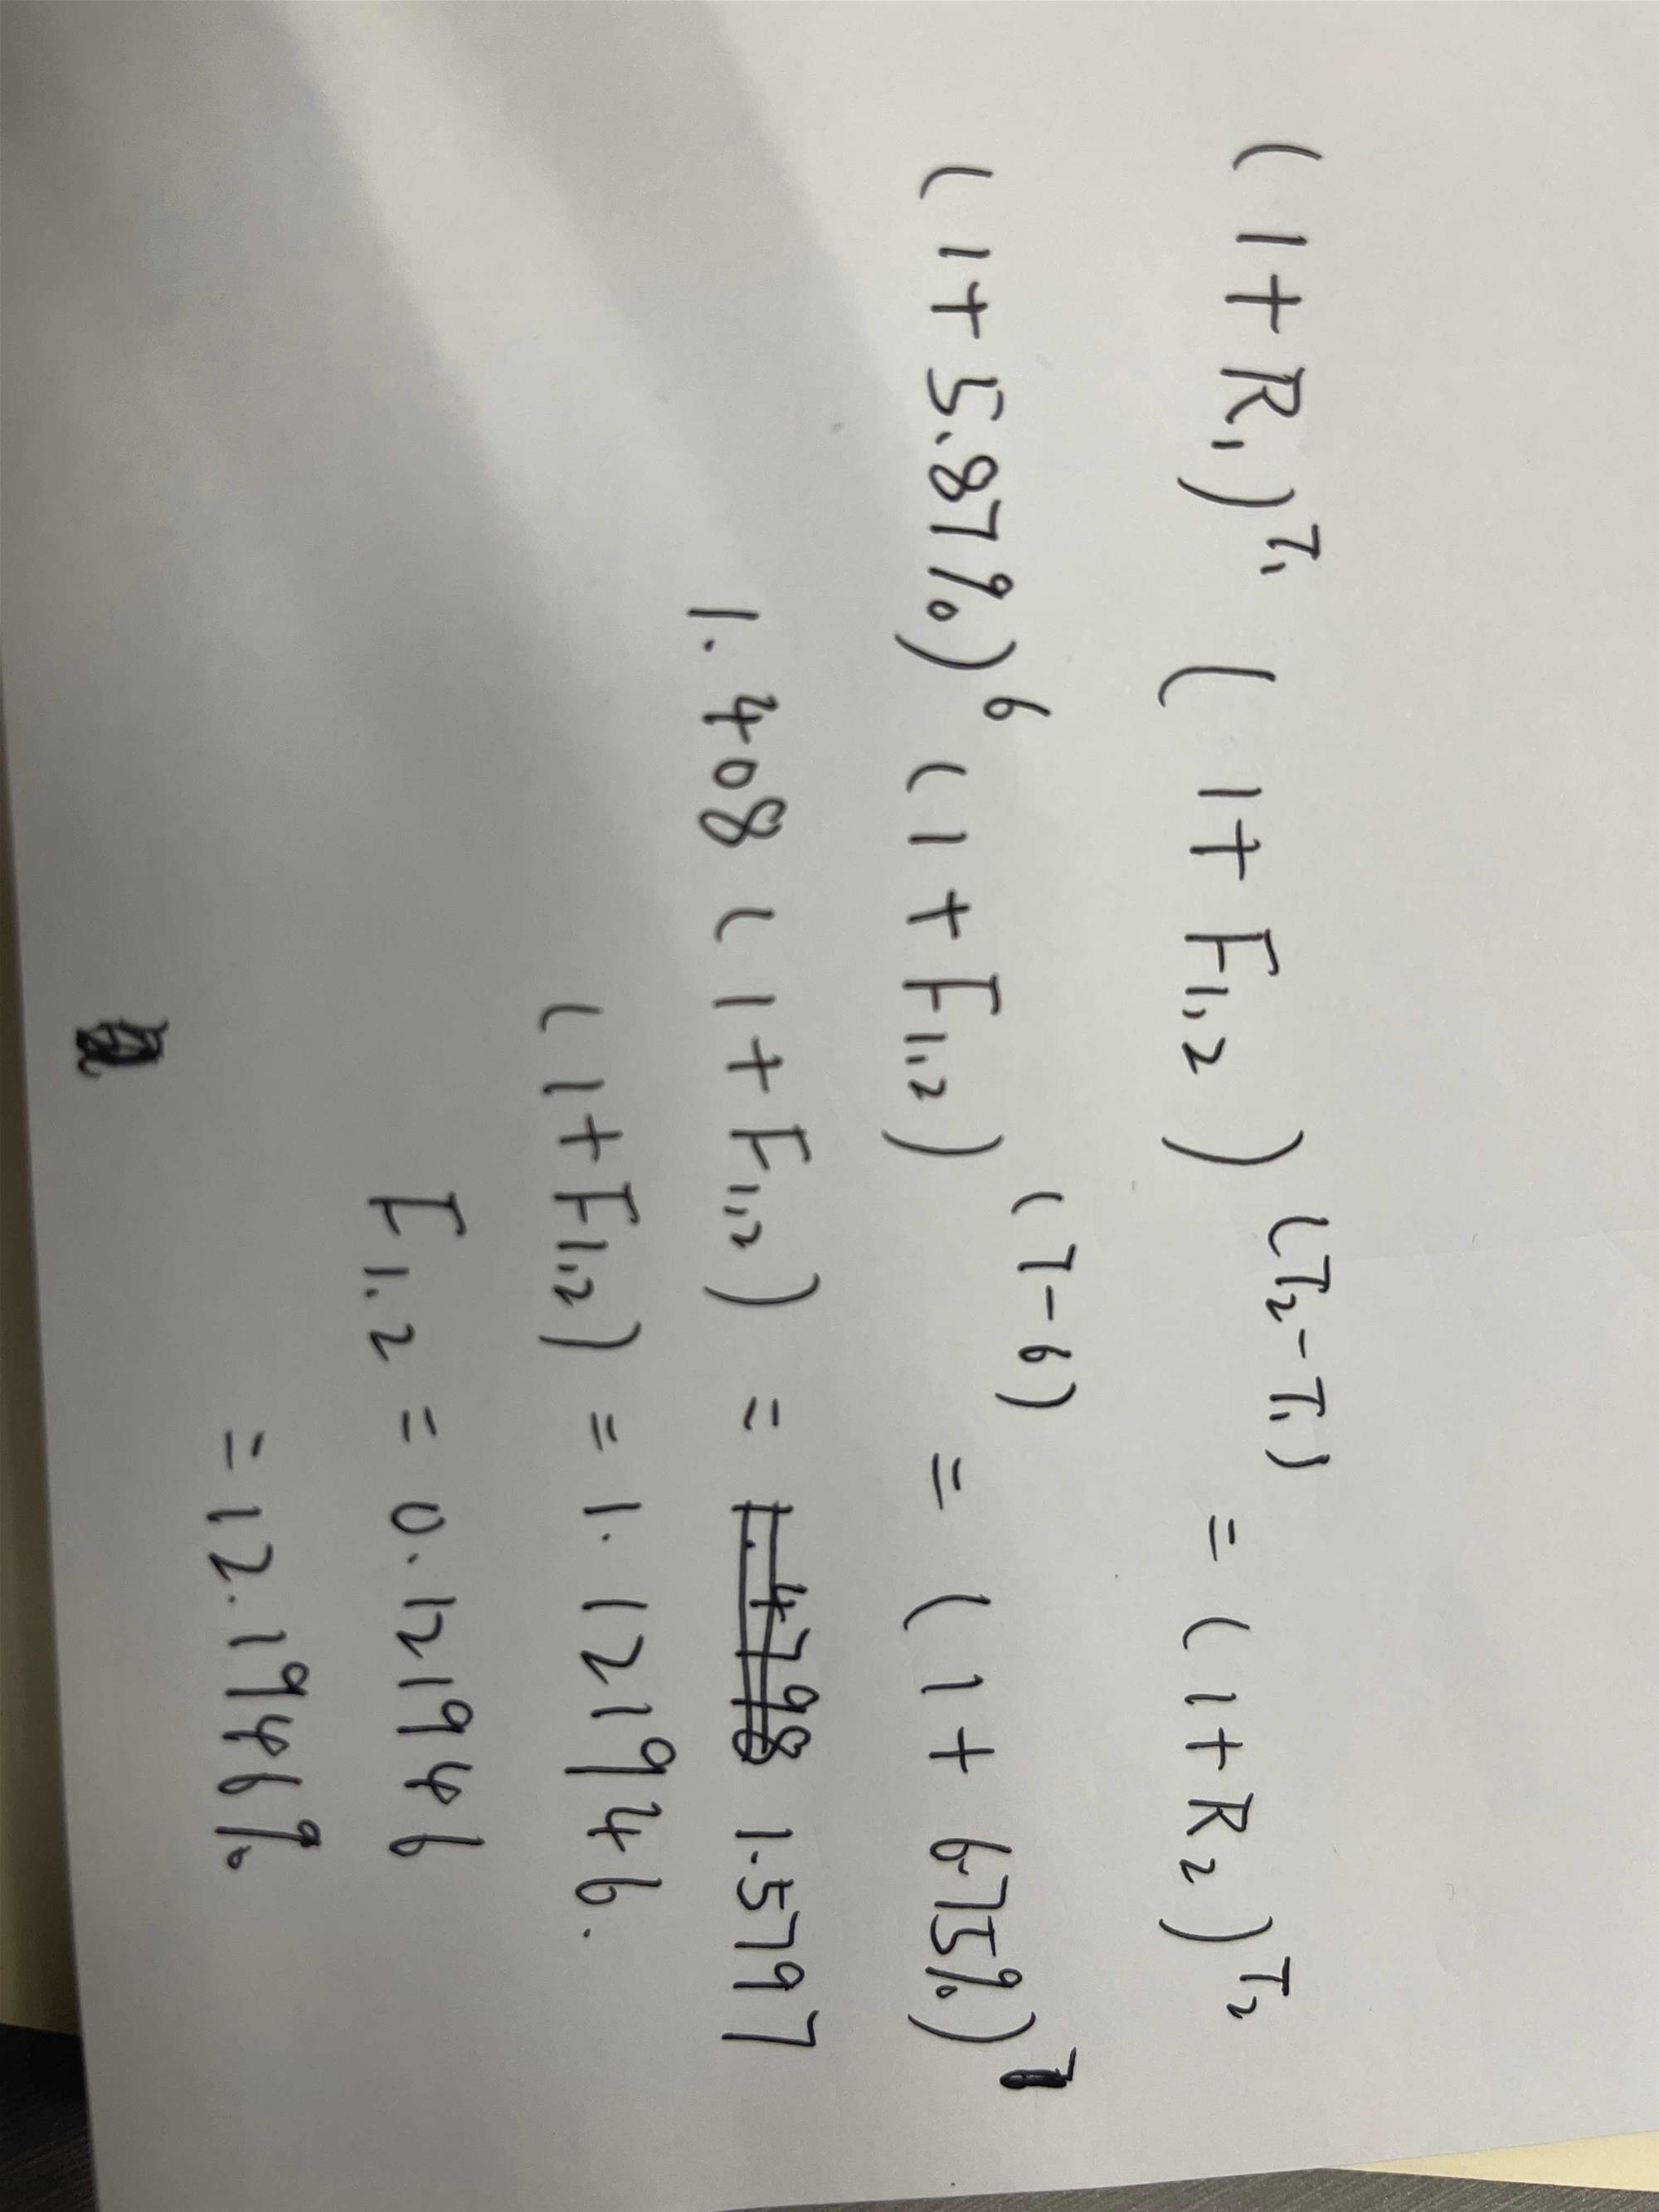 (1+R₁)^T₁ (1+F₁,₂)^(T₂-T₁) = (1+R₂)^T₂
(1+5.87%)^6 (1+F₁,₂)^(7-6) = (1+6.75%)^7
1.408 (1+F₁,₂) = 1.4798 1.5797
(1+F₁,₂) = 1.121946.
F₁.₂ = 0.121946
= 12.1946%